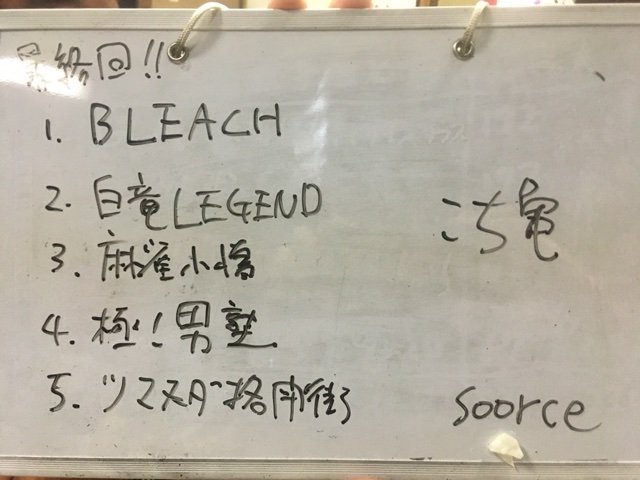 最終回!!
1. BLEACH
2. 白竜LEGEND
3. 麻雀小僧
4. 極!!男塾
5.
こち亀
soorce